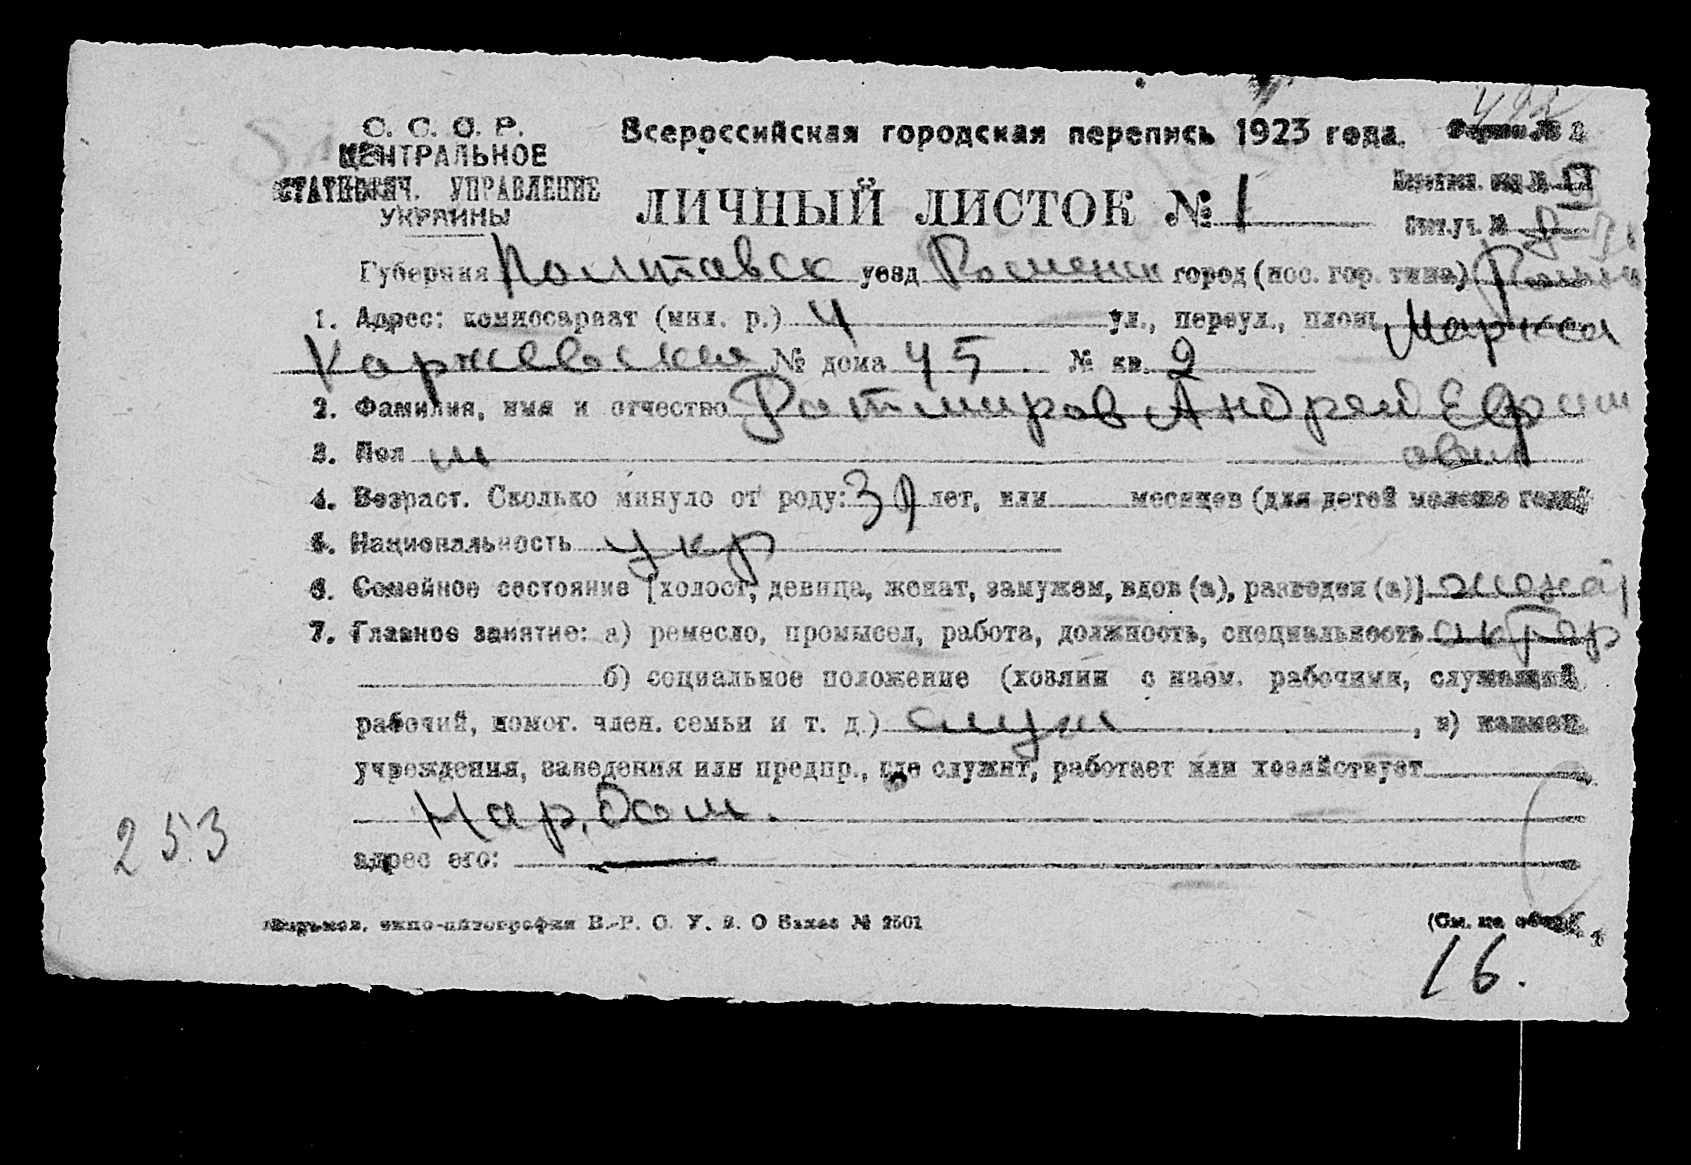 С. С. С. Р.
ЦЕНТРАЛЬНОЕ
СТАТИСТИЧ. УПРАВЛЕНИЕ
УКРАИНЫ
Всероссийская городская перепись 1923 года.
Форма № 2
ЛИЧНЫЙ ЛИСТОК № 1
Губерния Полтавск уезд Роменск город (пос. гор. типа)
1. Адрес: комиссариат (мил. р.) 4 ул., переул., площ. Маркса
№ дома 45 № кв. 2
2. Фамилия, имя и отчество Ратмиров Андрей Ефим
3. Пол м ович
4. Возраст. Сколько минуло от роду: 39 лет, или месяцев (для детей моложе года)
5. Национальность укр
6. Семейное состояние [холост, девица, женат, замужем, вдов (а), разведен (а)] женат
7. Главное занятие: а) ремесло, промысел, работа, должность, специальность актер
б) социальное положение (хозяин с наем. рабочими, служащий,
рабочий, помог. член. семьи и т. д.) служ , в) наимен.
учреждения, заведения или предпр., где служит, работает или хозяйствует
Нар. Дом.
253
адрес его: —
Харьков, типо-литография В.-Р. С. У. З. О Заказ № 2501
(См. на обор.)
16.